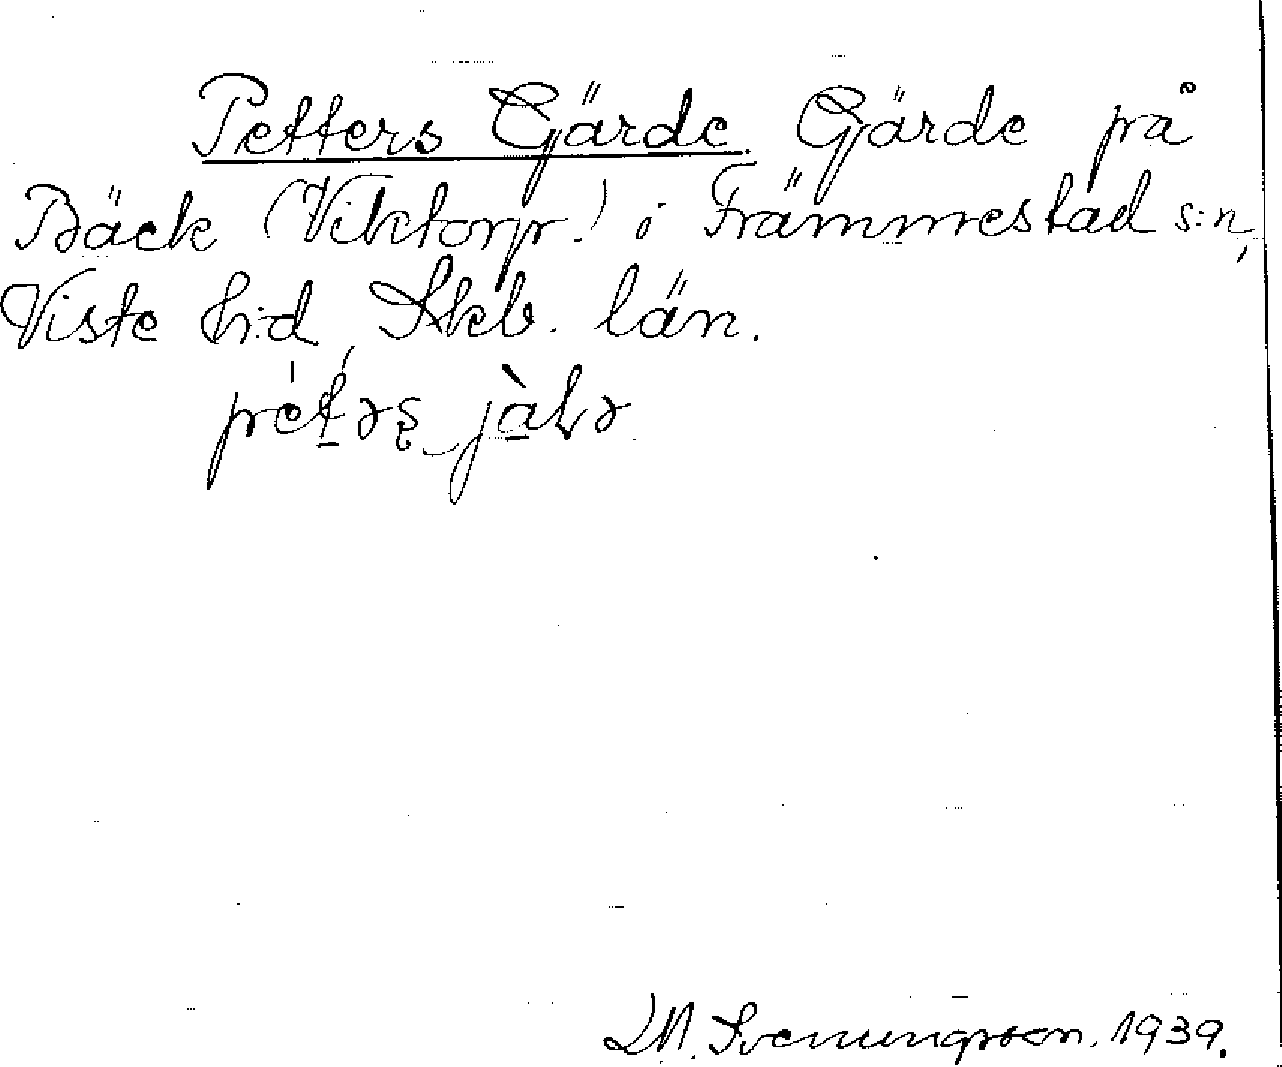 Petters Gärde. Gärde på
Bäck (Viktorp.) i Främmestad s:n,
Viste h:d, Skb. län.
pét̠ərs̨ jà̠Lə
M. Svenungsson. 1939.